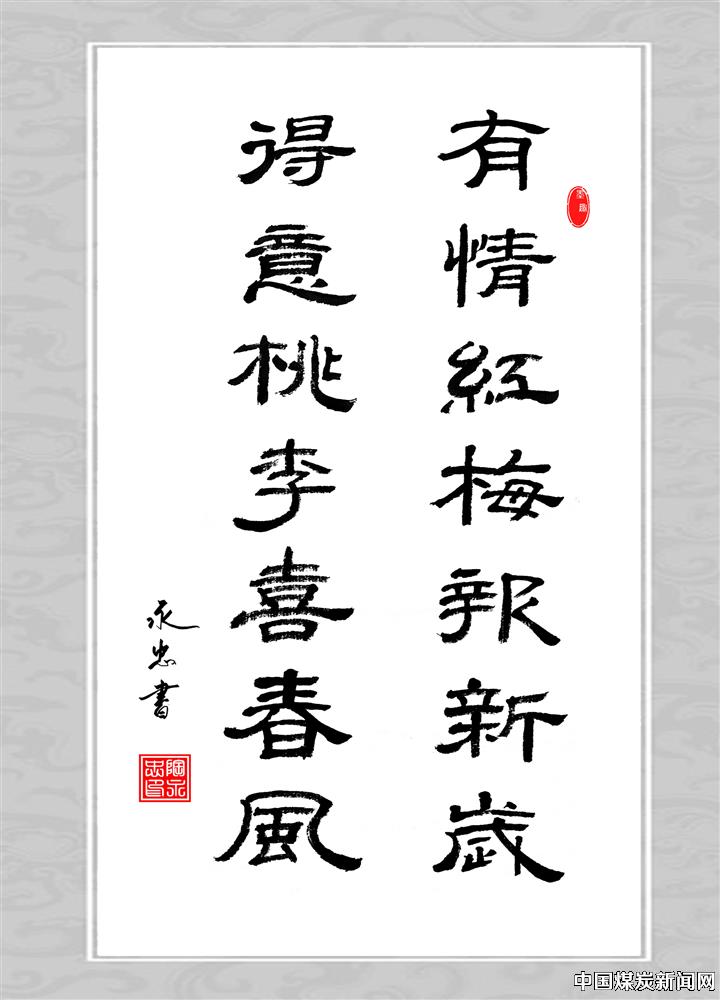 有情紅梅報新歲
得意桃李喜春風
永忠書
陶永忠印
中国煤炭新闻网